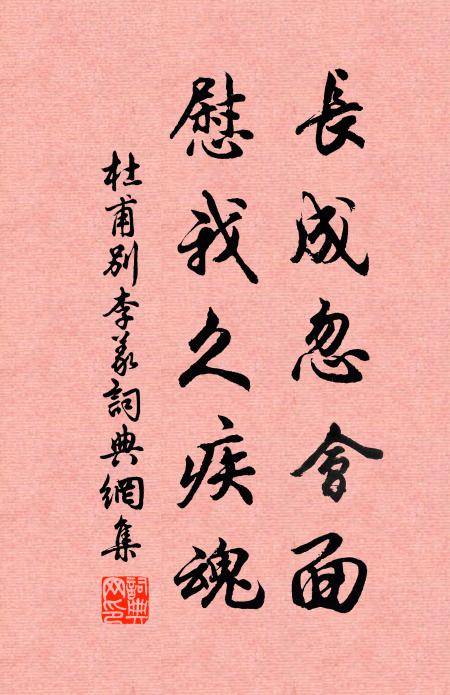 長成忽會面
慰我久疾魂
杜甫別李義詞典網集
詞典
网印